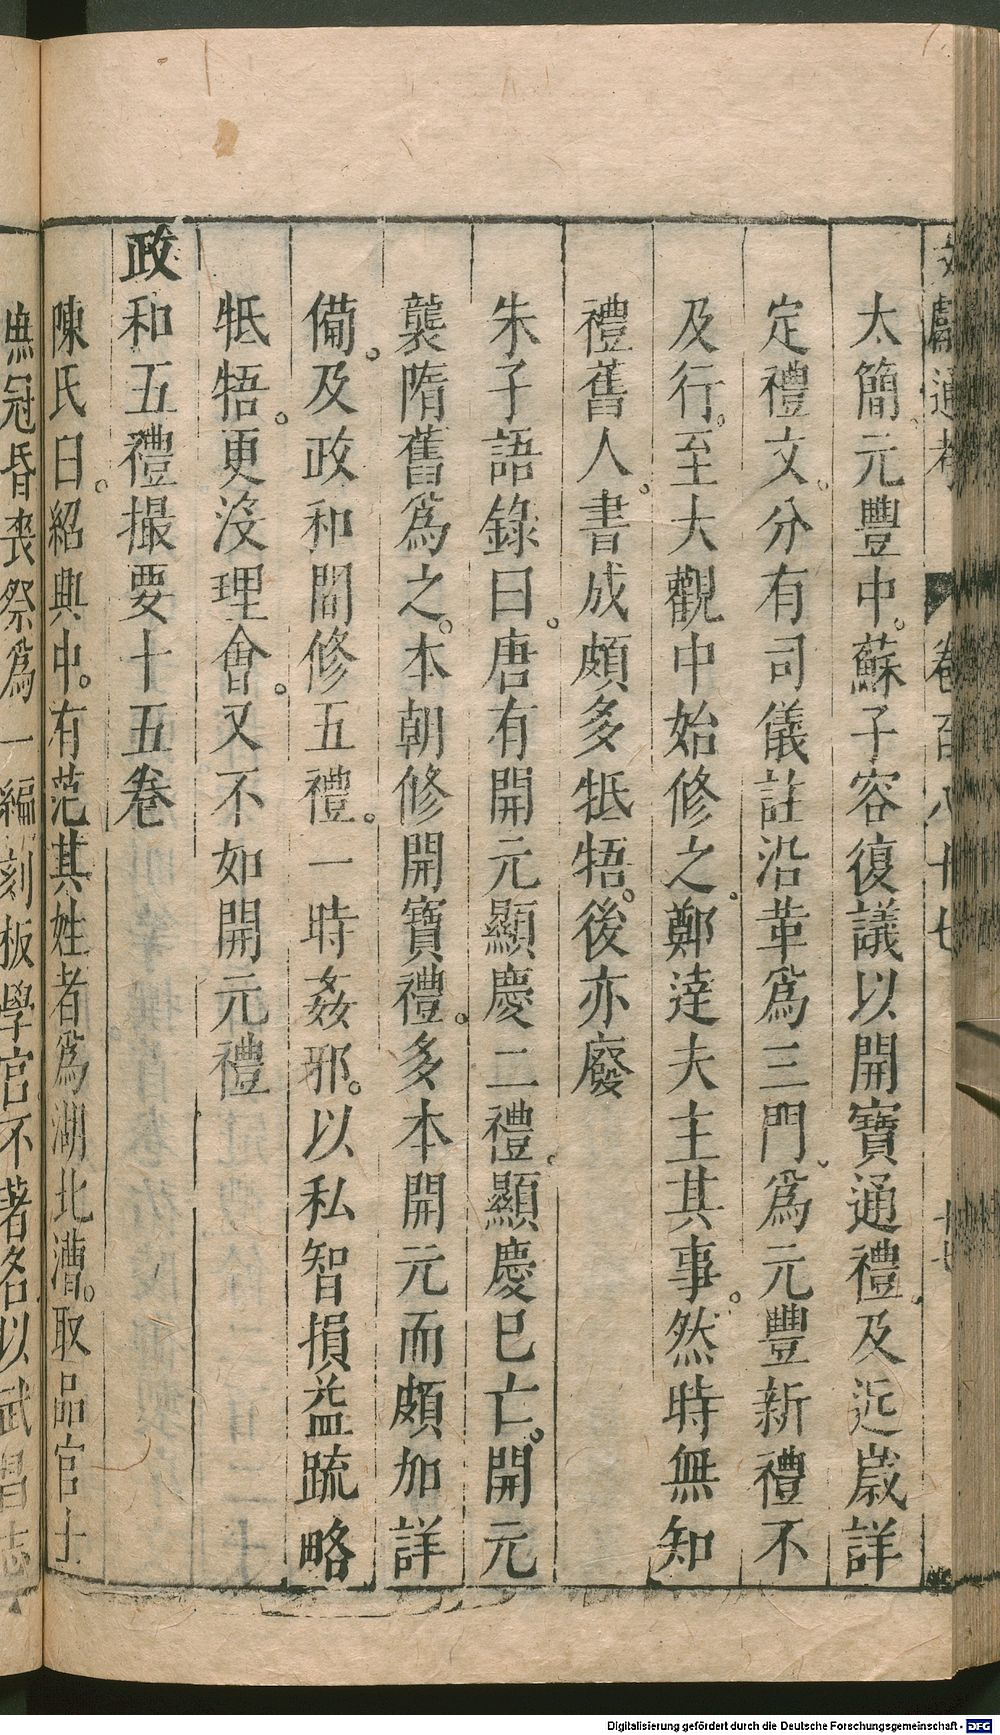 文獻通考 卷百八十七 十七
太簡元豐中。蘇子容復議以開寶通禮。及近歲詳
定禮文。分有司儀註沿革爲三門。爲元豐新禮不
及行。至大觀中始修之。鄭達夫主其事。然時無知
禮舊人。書成頗多牴牾。後亦廢
朱子語錄曰。唐有開元顯慶二禮。顯慶已亡。開元
襲隋舊爲之。本朝修開寶禮。多本開元而頗加詳
備。及政和間修五禮。一時姦邪。以私智損益疏略
牴牾。更沒理會。又不如開元禮
政和五禮撮要十五卷
陳氏曰。紹興中。有范其姓者爲湖北漕。取品官士
庶冠昏喪祭爲一編刻板學官不著名以武昌志
Digitalisierung gefördert durch die Deutsche Forschungsgemeinschaft - DFG